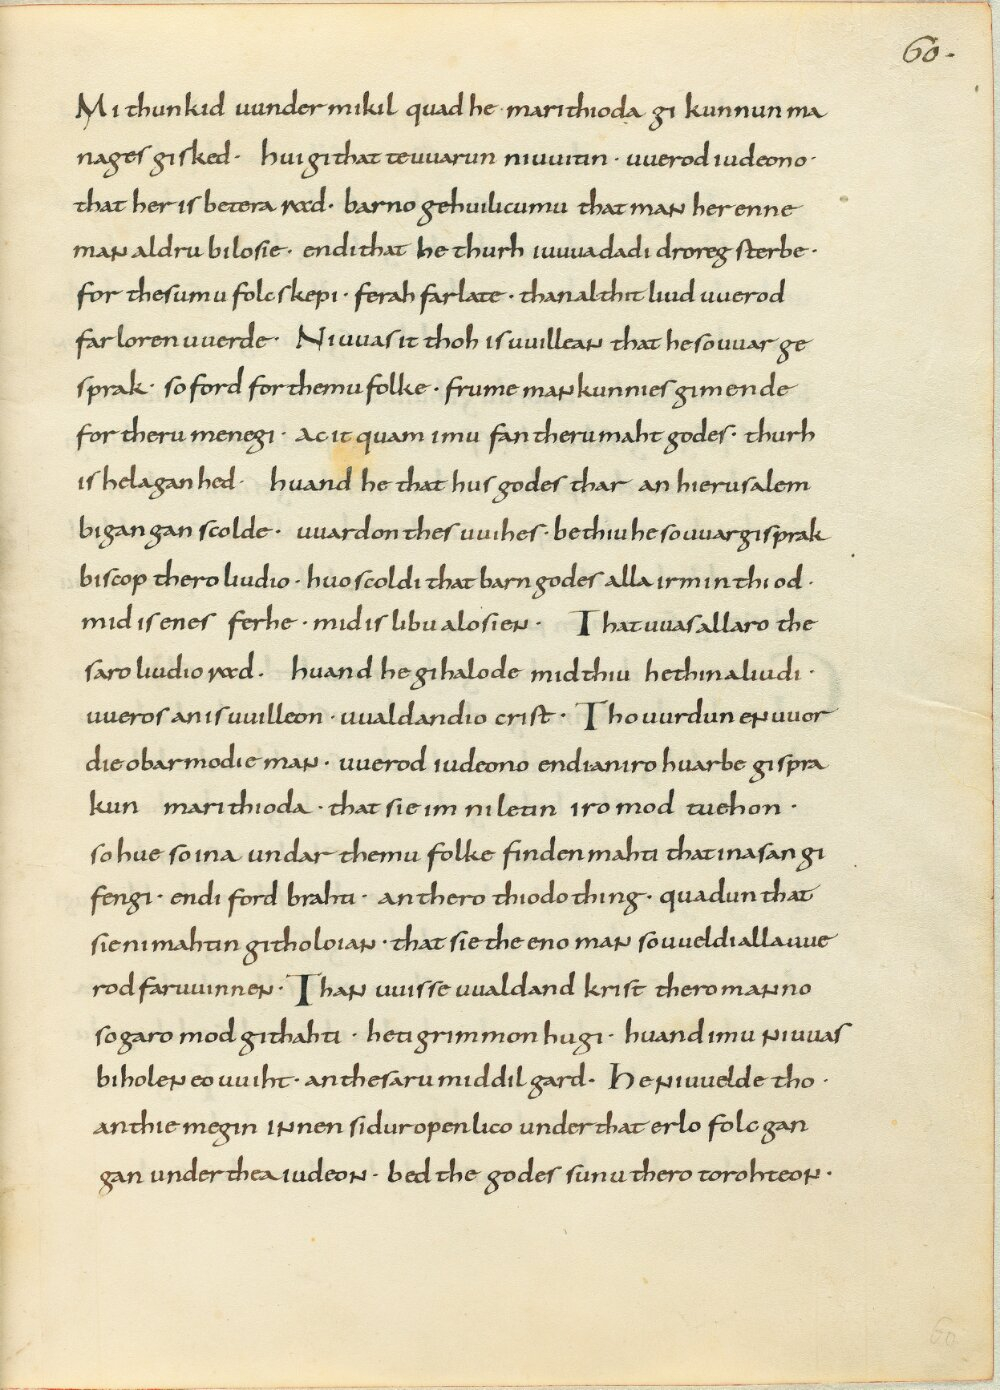 60.
Mi thunkid uunder mikil quad he · mari thioda gi kunnun ma
nages gisked · hui gi that te uuarun ni uuitin · uuerod iudeono ·
that her is betera rad · barno gehuilicumu that man her enne
man aldru bilosie · endi that he thurh iuuua dadi droreg sterbe ·
for thesumu folcskepi · ferah farlate · than al thit liud uuerod
farloren uuerde · Ni uuas it thoh is uuillean that he so uuar ge
sprak · so ford for themu folke · frume mankunnies gimende
for theru menegi · ac it quam imu fan theru maht godes · thurh
is helagan hed · huand he that hus godes thar an hierusalem
bigangan scolde · uuardon thes uuihes · bethiu he so uuar gisprak
biscop thero liudio · huo scoldi that barn godes alla irminthiod ·
mid is enes ferhe · mid is libu alosien · That uuas allaro the
saro liudio rad · huand he gihalode mid thiu hethina liudi ·
uueros an is uuilleon · uualdandio crist · Tho uurdun en uuor
die obarmodie man · uuerod iudeono endi an iro huarbe gispra
kun mari thioda · that sie im ni letin iro mod tuehon ·
so hue so ina undar themu folke finden mahti that ina san gi
fengi · endi ford brahti · an thero thiodo thing · quadun that
sie ni mahtin githoloian · that sie the eno man so uueldi alla uue
rod faruuinnen · Than uuisse uualdand krist thero manno
so garo modgithahti · hetigrimmon hugi · huand imu ni uuas
biholen eouuiht · an thesaru middilgard · He ni uuelde tho ·
an thie megin innen sidur openlico under that erlo folc gan
gan under thea iudeon · bed the godes sunu thero torohteon ·
60